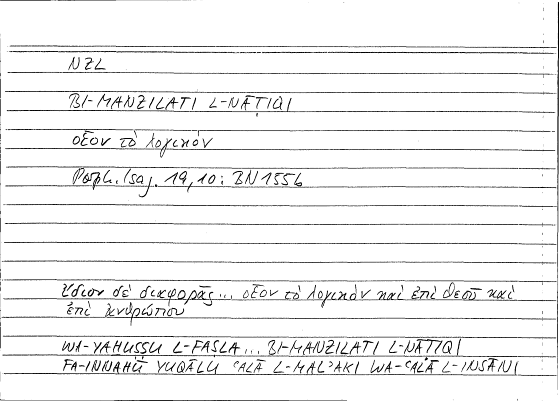 NZL
BI-MANZILATI L-NĀṬIQI
οἷον τὸ λογικόν
Porph. Isag. 19,10: BN 155b
ἴδιον δὲ διαφορᾶς... οἷον τὸ λογικόν καὶ ἐπὶ θεοῦ καὶ
ἐπὶ ἀνθρώπου
WA-YAḪUṢṢU L-FAṢLA... BI-MANZILATI L-NĀṬIQI
FA-INNAHŪ YUQĀLU ʿALĀ L-MALʾAKI WA-ʿALĀ L-INSĀNI